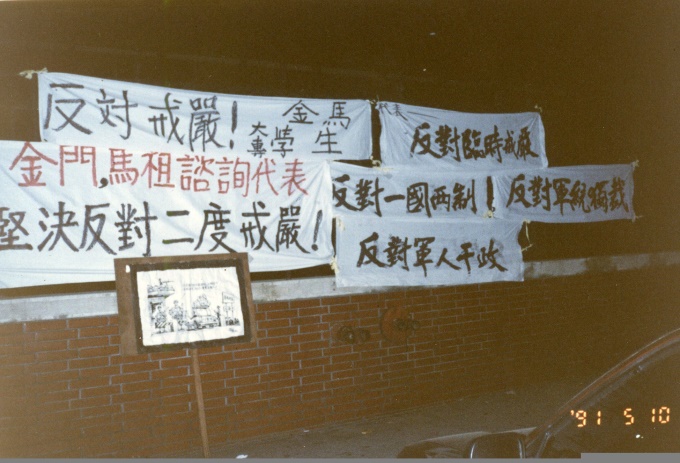 反対戒嚴!
金馬
大專學生
代表
反對臨時戒嚴
金門,馬祖諮詢代表
堅決反對二度戒嚴!
反對一國両制!
反對軍統獨裁
反對軍人干政
'91 5 10